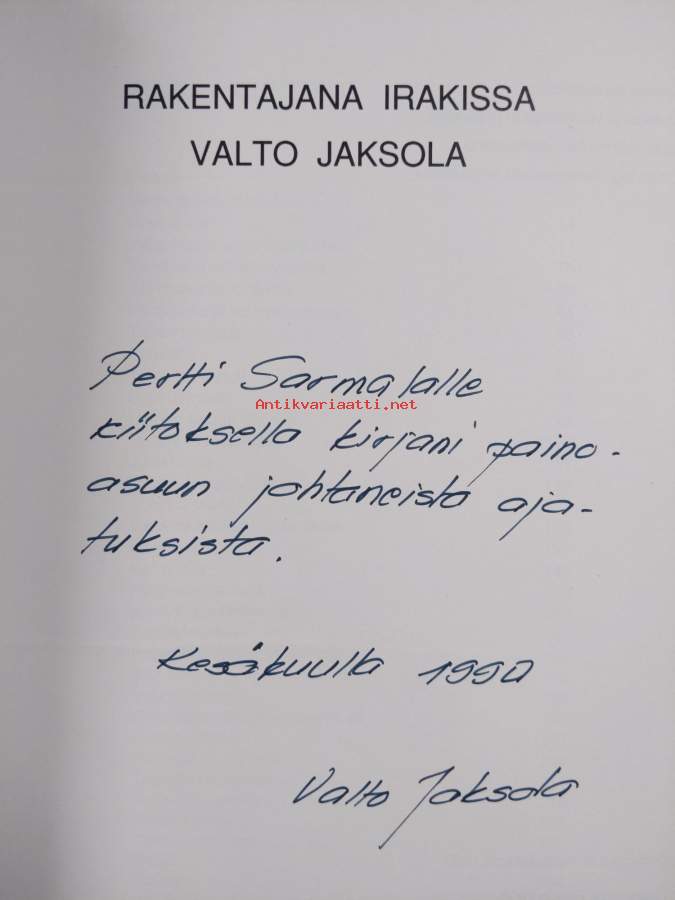 RAKENTAJANA IRAKISSA
VALTO JAKSOLA
Pertti Sarmalalle
Antikvariaatti.net
kiitoksella kirjani paino-
asuun johtaneista aja-
tuksista.
Kesäkuulla 1990
Valto Jaksola